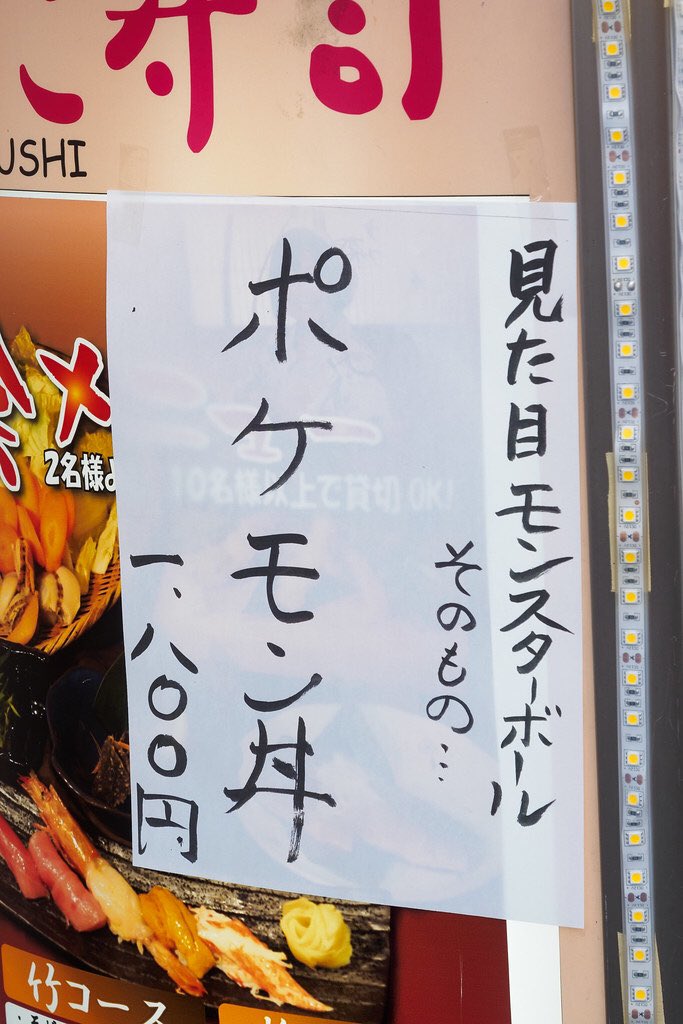 寿司
USHI
見た目モンスターボール
そのもの…
ポケモン丼
一、八〇〇円
10名様以上で貸切OK!
2名様よ
竹コース